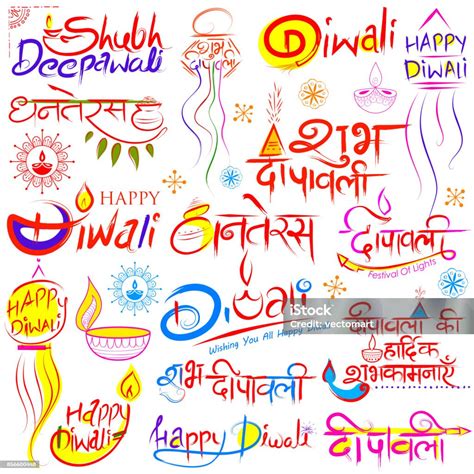 Shubh
Deepawali
शुभ
दीपावली
Diwali
HAPPY
DIWALI
धनतेरस
शुभ
दीपावली
HAPPY
Diwali
धनतेरस
दीपावली
Festival Of Lights
HAPPY
DIWALI
Diwali
Wishing You All Happy Di
iStock
Credit: vectomart
दीपावली की
हार्दिक
शुभकामनाएँ
शुभ दीपावली
Happy
Diwali
Happy Diwali
दीपावली